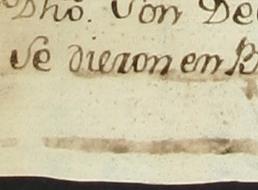 Dho. Son De
Se dieron en R